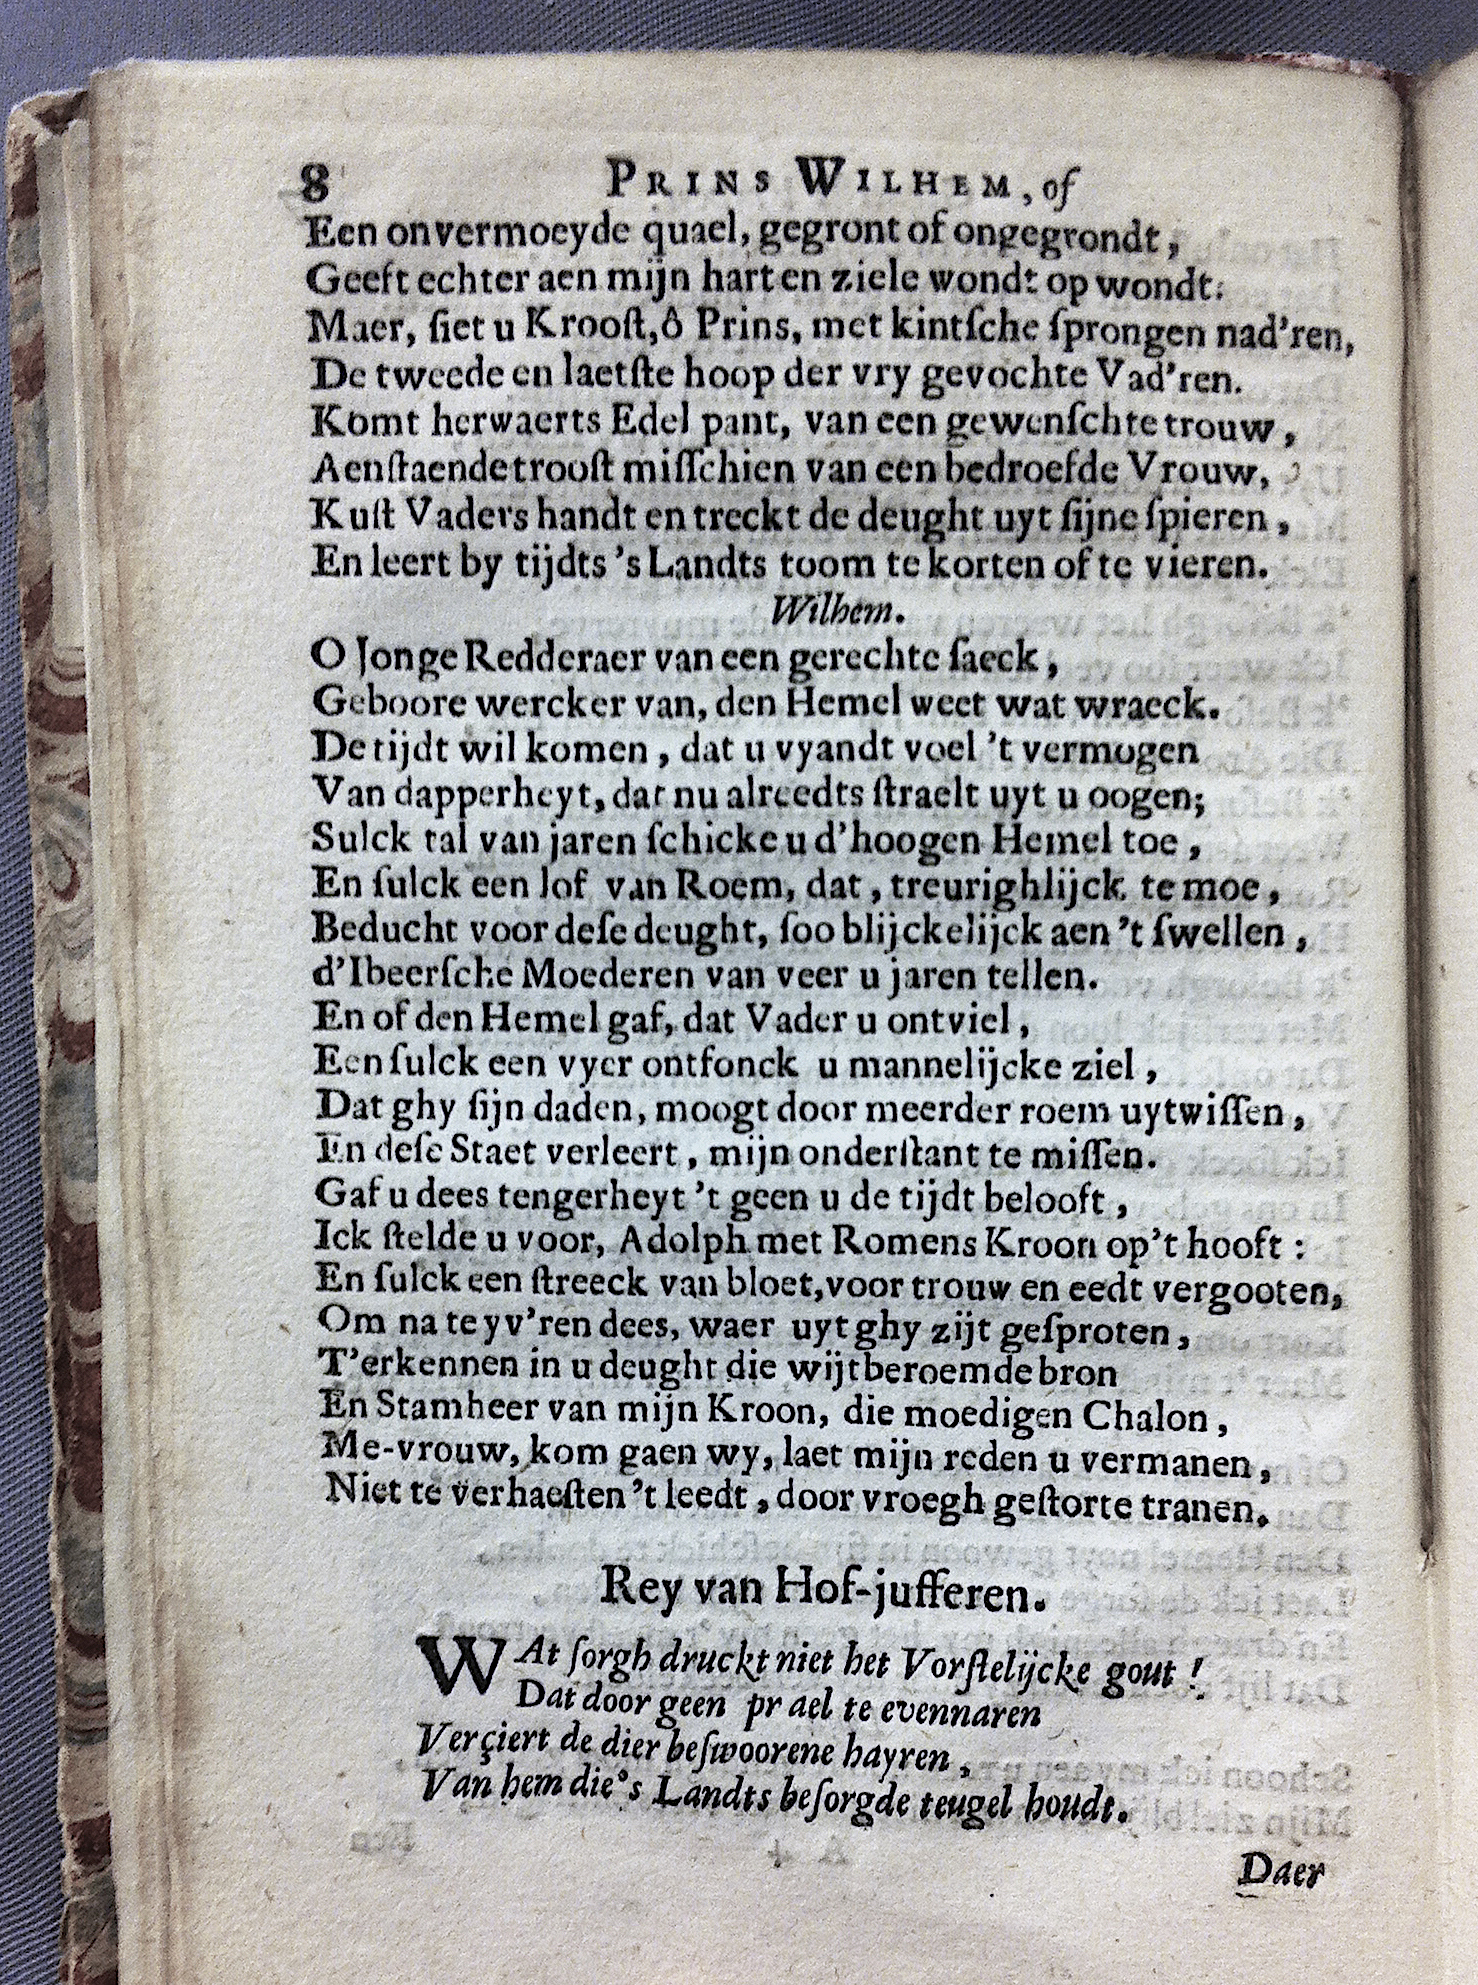 8 PRINS WILHEM, of
Een onvermoeyde quael, gegront of ongegrondt,
Geeft echter aen mijn hart en ziele wondt op wondt.
Maer, ſiet u Krooſt, ô Prins, met kintſche ſprongen nad'ren,
De tweede en laetſte hoop der vry gevochte Vad'ren.
Komt herwaerts Edel pant, van een gewenſchte trouw,
Aenſtaende trooſt miſſchien van een bedroefde Vrouw,
Kuſt Vaders handt en treckt de deught uyt ſijne ſpieren,
En leert by tijdts 's Landts toom te korten of te vieren.
Wilhem.
O Jonge Redderaer van een gerechte ſaeck,
Geboore wercker van, den Hemel weet wat wraeck.
De tijdt wil komen, dat u vyandt voel 't vermogen
Van dapperheyt, dat nu alreedts ſtraelt uyt u oogen;
Sulck tal van jaren ſchicke u d'hoogen Hemel toe,
En ſulck een lof van Roem, dat, treurighlijck te moe,
Beducht voor deſe deught, ſoo blijckelijck aen 't ſwellen,
d'Ibeerſche Moederen van veer u jaren tellen.
En of den Hemel gaf, dat Vader u ontviel,
Een ſulck een vyer ontfonck u mannelijcke ziel,
Dat ghy ſijn daden, moogt door meerder roem uytwiſſen,
En deſe Staet verleert, mijn onderſtant te miſſen.
Gaf u dees tengerheyt 't geen u de tijdt belooft,
Ick ſtelde u voor, Adolph met Romens Kroon op't hooft:
En ſulck een ſtreeck van bloet, voor trouw en eedt vergooten,
Om na te yv'ren dees, waer uyt ghy zijt geſproten,
T'erkennen in u deught die wijtberoemde bron
En Stamheer van mijn Kroon, die moedigen Chalon,
Me-vrouw, kom gaen wy, laet mijn reden u vermanen,
Niet te verhaeſten 't leedt, door vroegh geſtorte tranen.
Rey van Hof-jufferen.
WAt ſorgh druckt niet het Vorſtelijcke gout!
Dat door geen prael te evennaren
Verçiert de dier beſwoorene hayren,
Van hem die's Landts beſorgde teugel houdt.
Daer